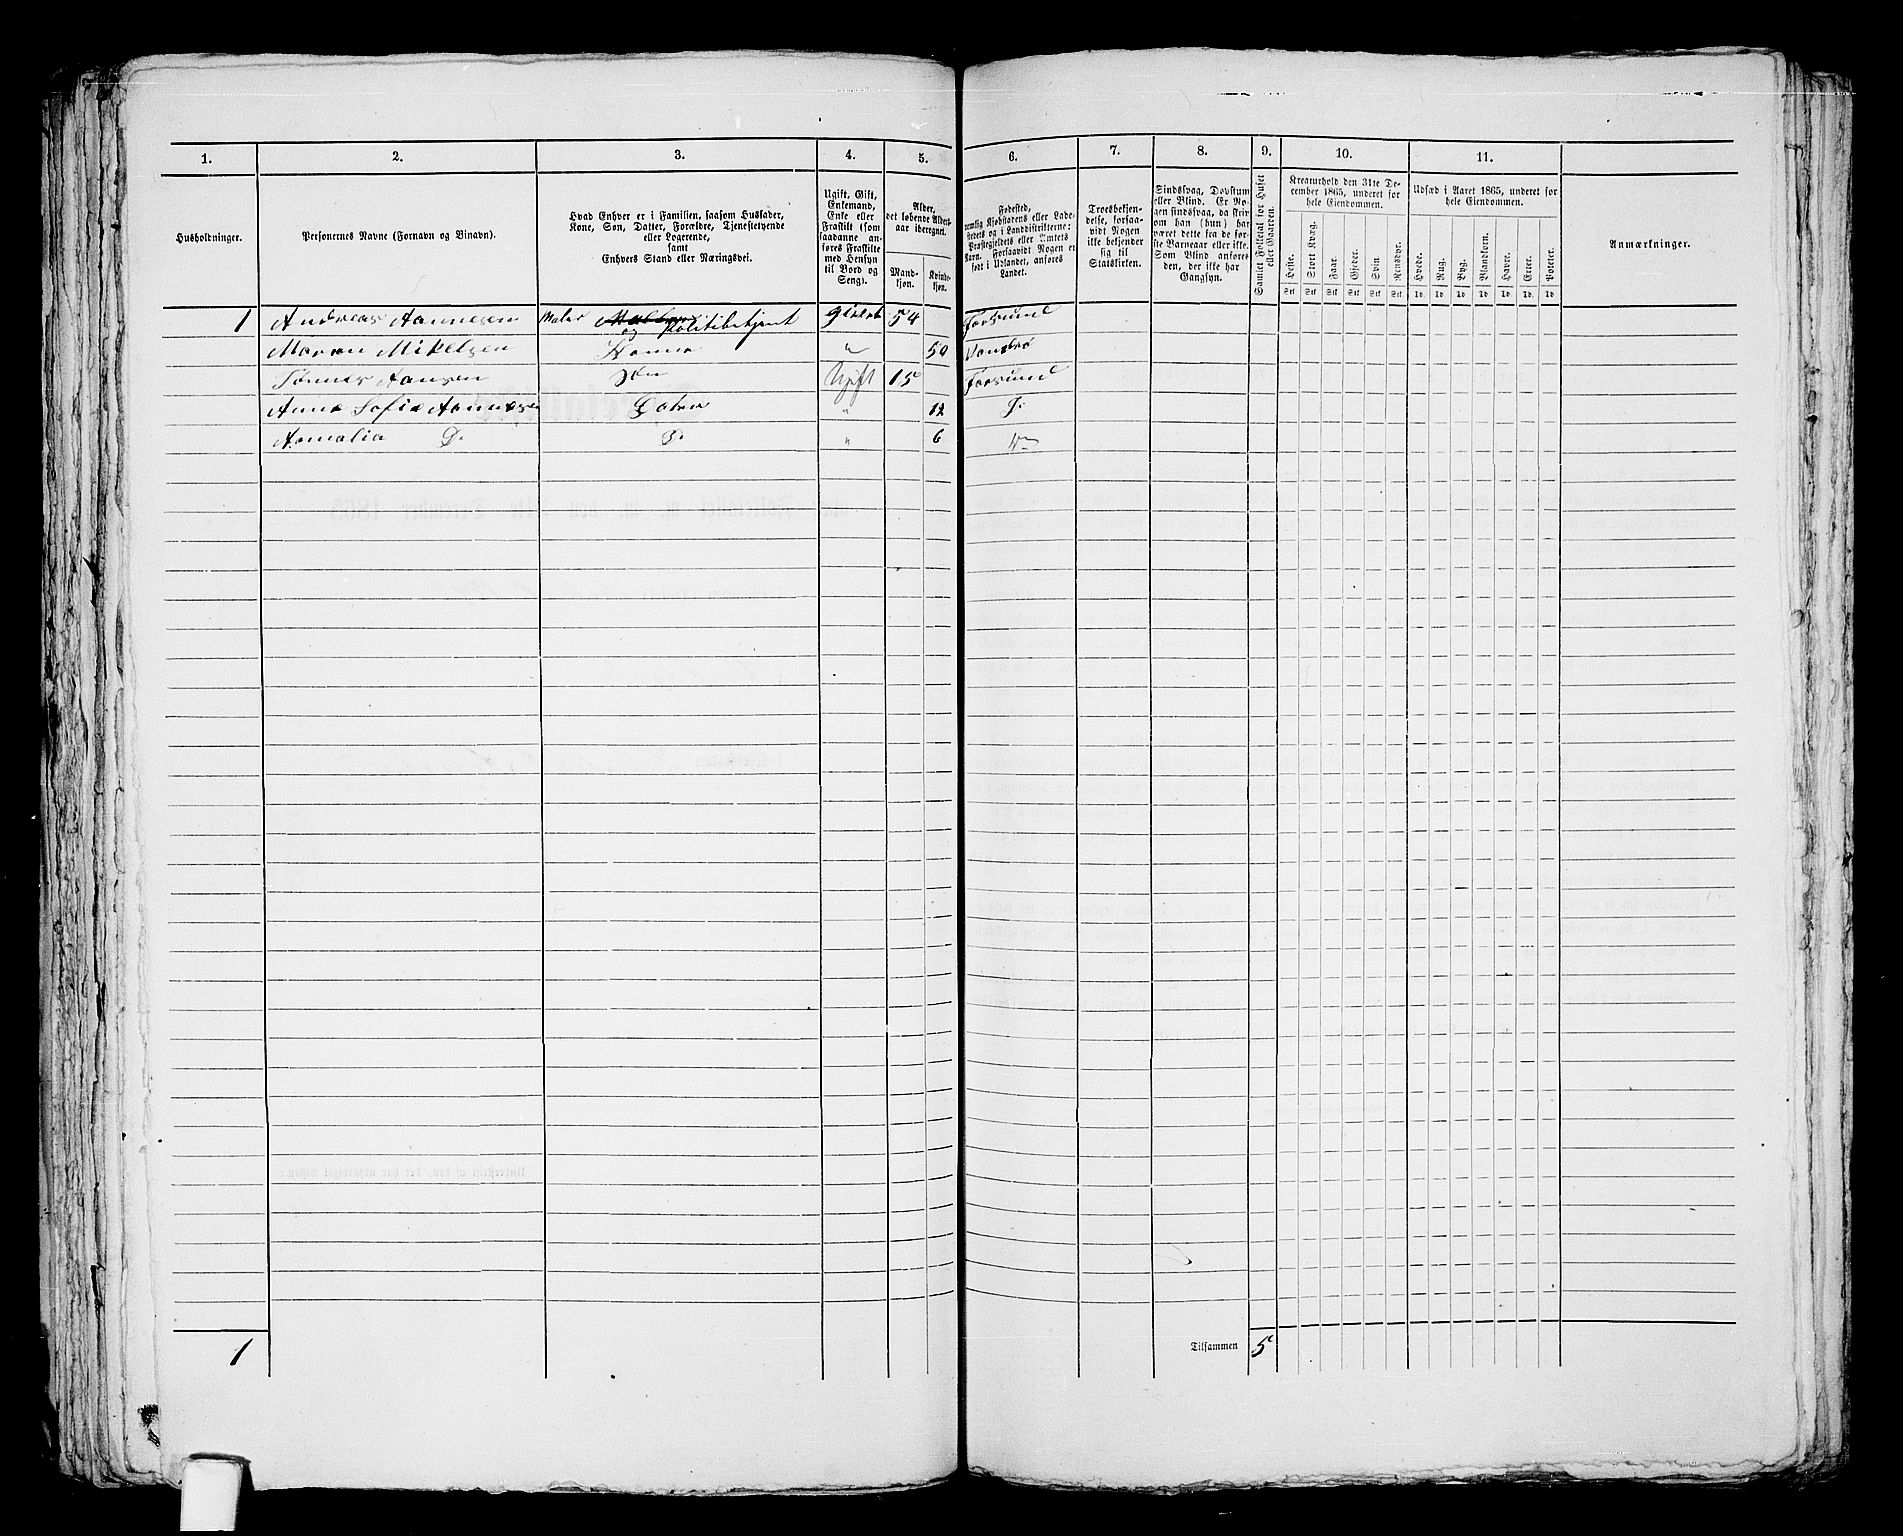 1. 2. 3. 4. 5. 6. 7. 8. 9. 10. 11.
Husholdninger.
Personernes Navne (Fornavn og Binavn).
Hvad Enhver er i Familien, saasom Husfader,
Kone, Søn, Datter, Forældre, Tjenestetyende
eller Logerende,
samt
Enhvers Stand eller Næringsvei.
Ugift, Gift,
Enkemand,
Enke eller
Fraskilt (som
saadanne an-
føres Fraskilte
med Hensyn
til Bord og
Seng).
Alder,
det løbende Alders-
aar iberegnet.
Mand-
kjøn.
Kvinde-
kjøn.
Fødested,
nemlig Kjøbstadens eller Lade-
stedets og i Landdistrikterne:
Præstegjeldets eller Amtets
Navn. Forsaavidt Nogen er
født i Udlandet, anføres
Landet.
Troesbekjen-
delse, forsaa-
vidt Nogen
ikke bekjender
sig til
Statskirken.
Sindssvag, Døvstum
eller Blind. Er No-
gen sindssvag, da skriv
om han (hun) har
været dette fra de før-
ste Barneaar eller ikke.
Som Blind anføres
den, der ikke har
Gangsyn.
Samlet Folketal for Huset
eller Gaarden.
Kreaturhold den 31te De-
cember 1865, underet for
hele Eiendommen.
Heste. Stort Kvæg. Faar. Gjeder. Svin Rensdyr.
Stk Stk Stk Stk Stk Stk
Udsæd i Aaret 1865, underet for
hele Eiendommen.
Hvede. Rug. Byg. Blandkorn. Havre. Erter. Poteter.
Td. Td Td Td Td Td. Td
Anmærkninger.
1 Andreas Aannesen Maler og Politibetjent Gift 54 Farsund
Maren Mikelsen Konne " 50 Vandsø
Tønnes Aansen Søn Ugift 15 Farsund
Anne Sofie Aannesen Dater " 12 D.
Aamalia D. D. " 6
1
Tilsammen 5